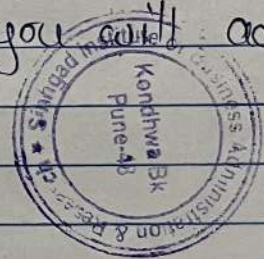 you will ac
Sinhgad Institute of Business Administration & Research ★
Kondhwa Bk
Pune-48